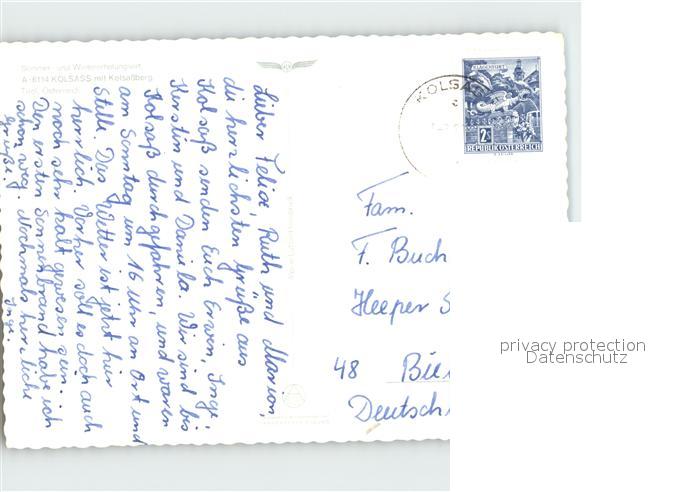 Sommer- und Wintererholungsort
A-6114 KOLSASS mit Kolsaßberg
Tirol, Österreich
Lieber Felix, Ruth und Marion,
die herzlichsten Grüße aus
Kolsaß senden Euch Erwin, Inge,
Kerstin und Daniela. Wir sind bis
Kolsaß durchgefahren, und waren
am Sonntag um 16 Uhr an Ort und
Stelle. Das Wetter ist jetzt hier
herrlich. Vorher soll es doch auch
noch sehr kalt gewesen sein. ich
Den ersten Sonnenbrand habe ich
schon weg. Nochmals herzliche
Grüße!
Inge.
KLAGENFURT
2
REPUBLIK ÖSTERREICH
KOLSAS
Fam.
F. Buch
Heeper S
48 Bie
Deutsch
privacy protection
Datenschutz